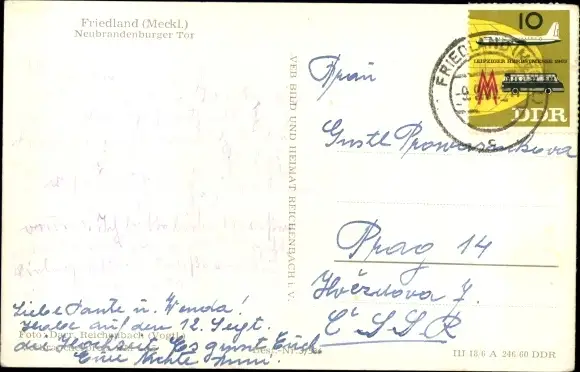 Friedland (Meckl.)
Neubrandenburger Tor
VEB BILD UND HEIMAT REICHENBACH i. V.
10
LEIPZIGER HERBSTMESSE 1963
MM
DDR
FRIEDLAND (MECKL)
Frau
Gustl Prowasenkova
Prag 14
Hvězdova 7.
ČSSR
Liebe Tante u. Wenda!
Habe auf den 12. Sept.
die Hochzeit. Es grüsst Euch
Eure Nichte
Foto: Darr, Reichenbach (Vogtl)
Best.-Nr.
III 18/6 A 246/60 DDR